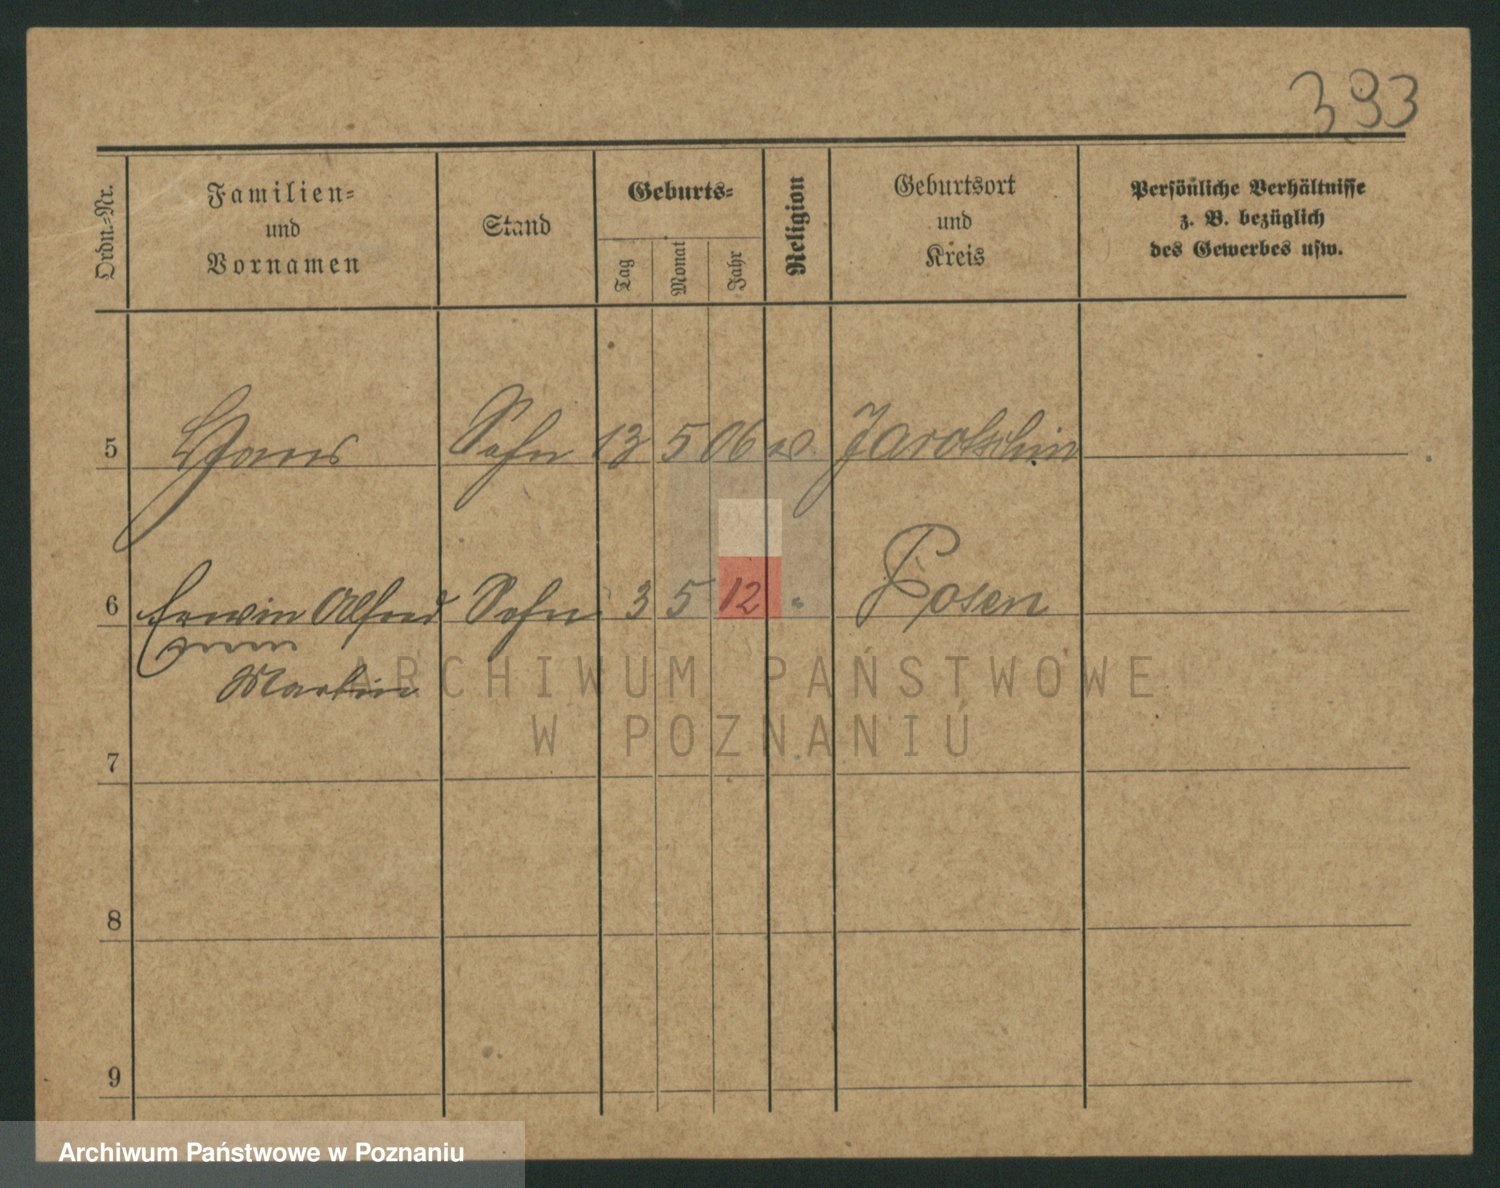 393
Ordn.-Nr.
Familien-
und
Vornamen
Stand
Geburts-
Tag
Monat
Jahr
Religion
Geburtsort
und
Kreis
Persönliche Verhältnisse
z. B. bezüglich
des Gewerbes usw.
5 Hans Sohn 13 5 06 Jarotschin
6 Erwin Alfred Sohn 3 5 12 " Posen
Martin
7
8
9
ARCHIWUM PAŃSTWOWE
W POZNANIU
Archiwum Państwowe w Poznaniu